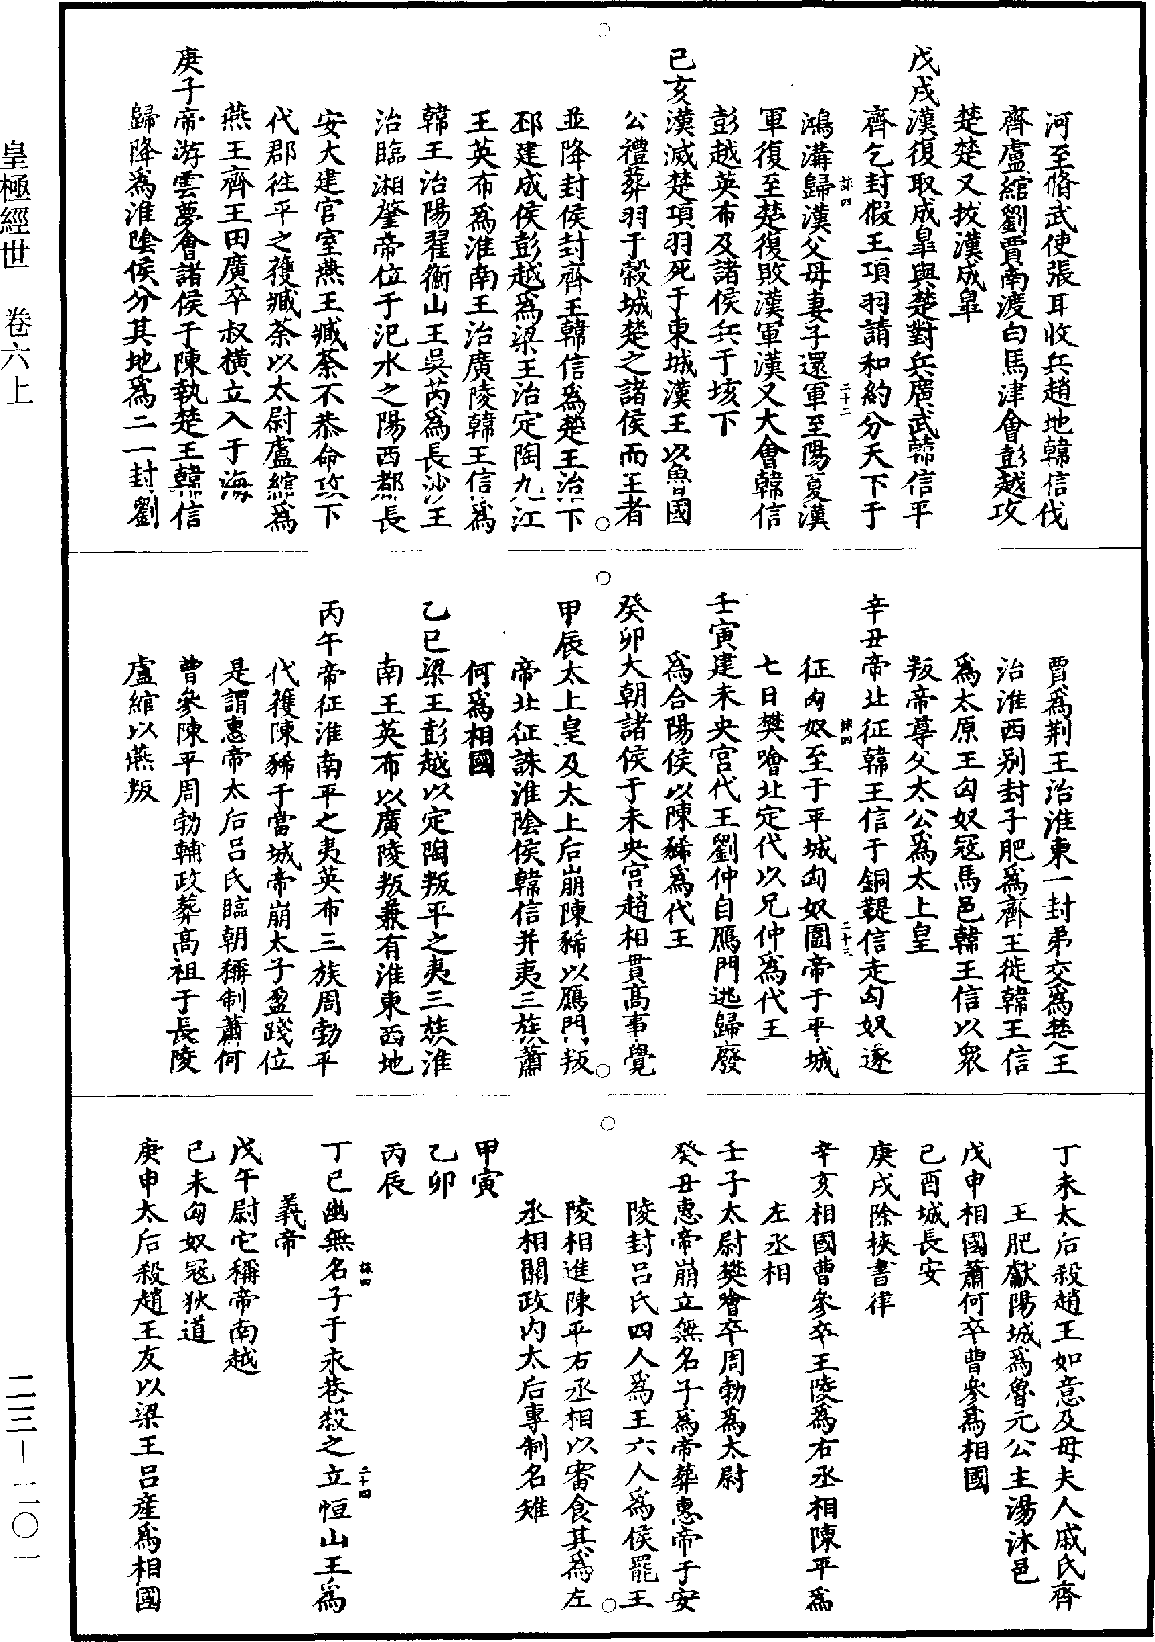 皇極經世 卷六上
河至脩武使張耳收兵趙地韓信伐
齊盧綰劉賈南渡白馬津會彭越攻
楚楚又拔漢成皐
戊戌漢復取成皐與楚對兵廣武韓信平
齊乞封假王項羽請和約分天下于
鴻溝歸漢父母妻子還軍至陽夏漢
軍復至楚復敗漢軍漢又大會韓信
彭越英布及諸侯兵于垓下
己亥漢滅楚項羽死于東城漢王以魯國
公禮葬羽于榖城楚之諸侯而王者
並降封侯封齊王韓信爲楚王治下
邳建成侯彭越爲梁王治定陶九江
王英布爲淮南王治廣陵韓王信爲
韓王治陽翟衡山王吳芮爲長沙王
治臨湘肇帝位于汜水之陽西都長
安大建宫室燕王臧荼不恭命攻下
代郡往平之獲臧荼以太尉盧綰爲
燕王齊王田廣卒叔橫立入于海
庚子帝游雲夢會諸侯于陳執楚王韓信
歸降爲淮陰侯分其地爲二一封劉
賈爲荆王治淮東一封弟交爲楚王
治淮西别封子肥爲齊王徙韓王信
爲太原王匈奴寇馬邑韓王信以衆
叛帝尊父太公爲太上皇
辛丑帝北征韓王信于銅鞮信走匈奴遂
征匈奴至于平城匈奴圍帝于平城
七日樊噲北定代以兄仲爲代王
壬寅建未央宫代王劉仲自鴈門逃歸廢
爲合陽侯以陳豨爲代王
癸卯大朝諸侯于未央宫趙相貫高事覺
甲辰太上皇及太上后崩陳豨以鴈門叛
帝北征誅淮陰侯韓信并夷三族蕭
何爲相國
乙巳梁王彭越以定陶叛平之夷三族淮
南王英布以廣陵叛兼有淮東西地
丙午帝征淮南平之夷英布三族周勃平
代獲陳豨于當城帝崩太子盈踐位
是謂惠帝太后吕氏臨朝稱制蕭何
曹參陳平周勃輔政葬高祖于長陵
盧綰以燕叛
丁未太后殺趙王如意及母夫人戚氏齊
王肥獻陽城爲魯元公主湯沐邑
戊申相國蕭何卒曹參爲相國
己酉城長安
庚戌除挾書律
辛亥相國曹參卒王陵爲右丞相陳平爲
左丞相
壬子太尉樊噲卒周勃爲太尉
癸丑惠帝崩立無名子爲帝葬惠帝于安
陵封吕氏四人爲王六人爲侯罷王
陵相進陳平右丞相以審食其爲左
丞相關政内太后專制名雉
甲寅
乙卯
丙辰
丁巳幽無名子于永巷殺之立恒山王爲
義帝
戊午尉它稱帝南越
己未匈奴寇狄道
庚申太后殺趙王友以梁王吕產爲相國
二三－一〇一